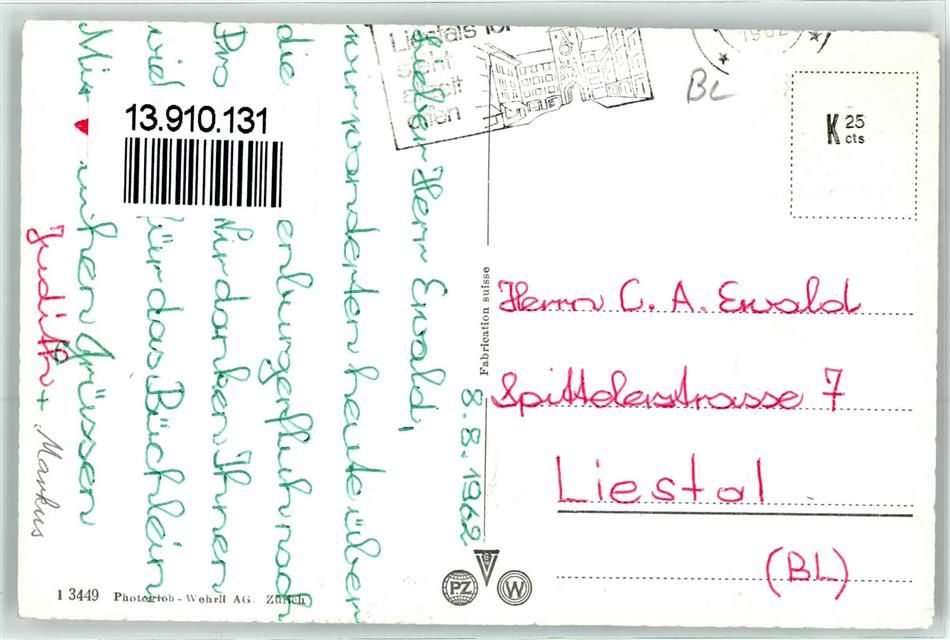 8.8.1962
Lieber Herr Ewald,
wir wanderten heute über
die enburgerfluh nach
Pro Wir danken Ihnen
viel für das Büchlein
Mit ♥ lichen Grüssen
Judith + Markus
13.910.131
Liestals
BL
K 25
cts
Herrn C. A. Ewald
Spittelerstrasse 7
Liestal
(BL)
Fabrication suisse
PZ
W
1 3449 Photoglob-Wehrli AG. Zürich